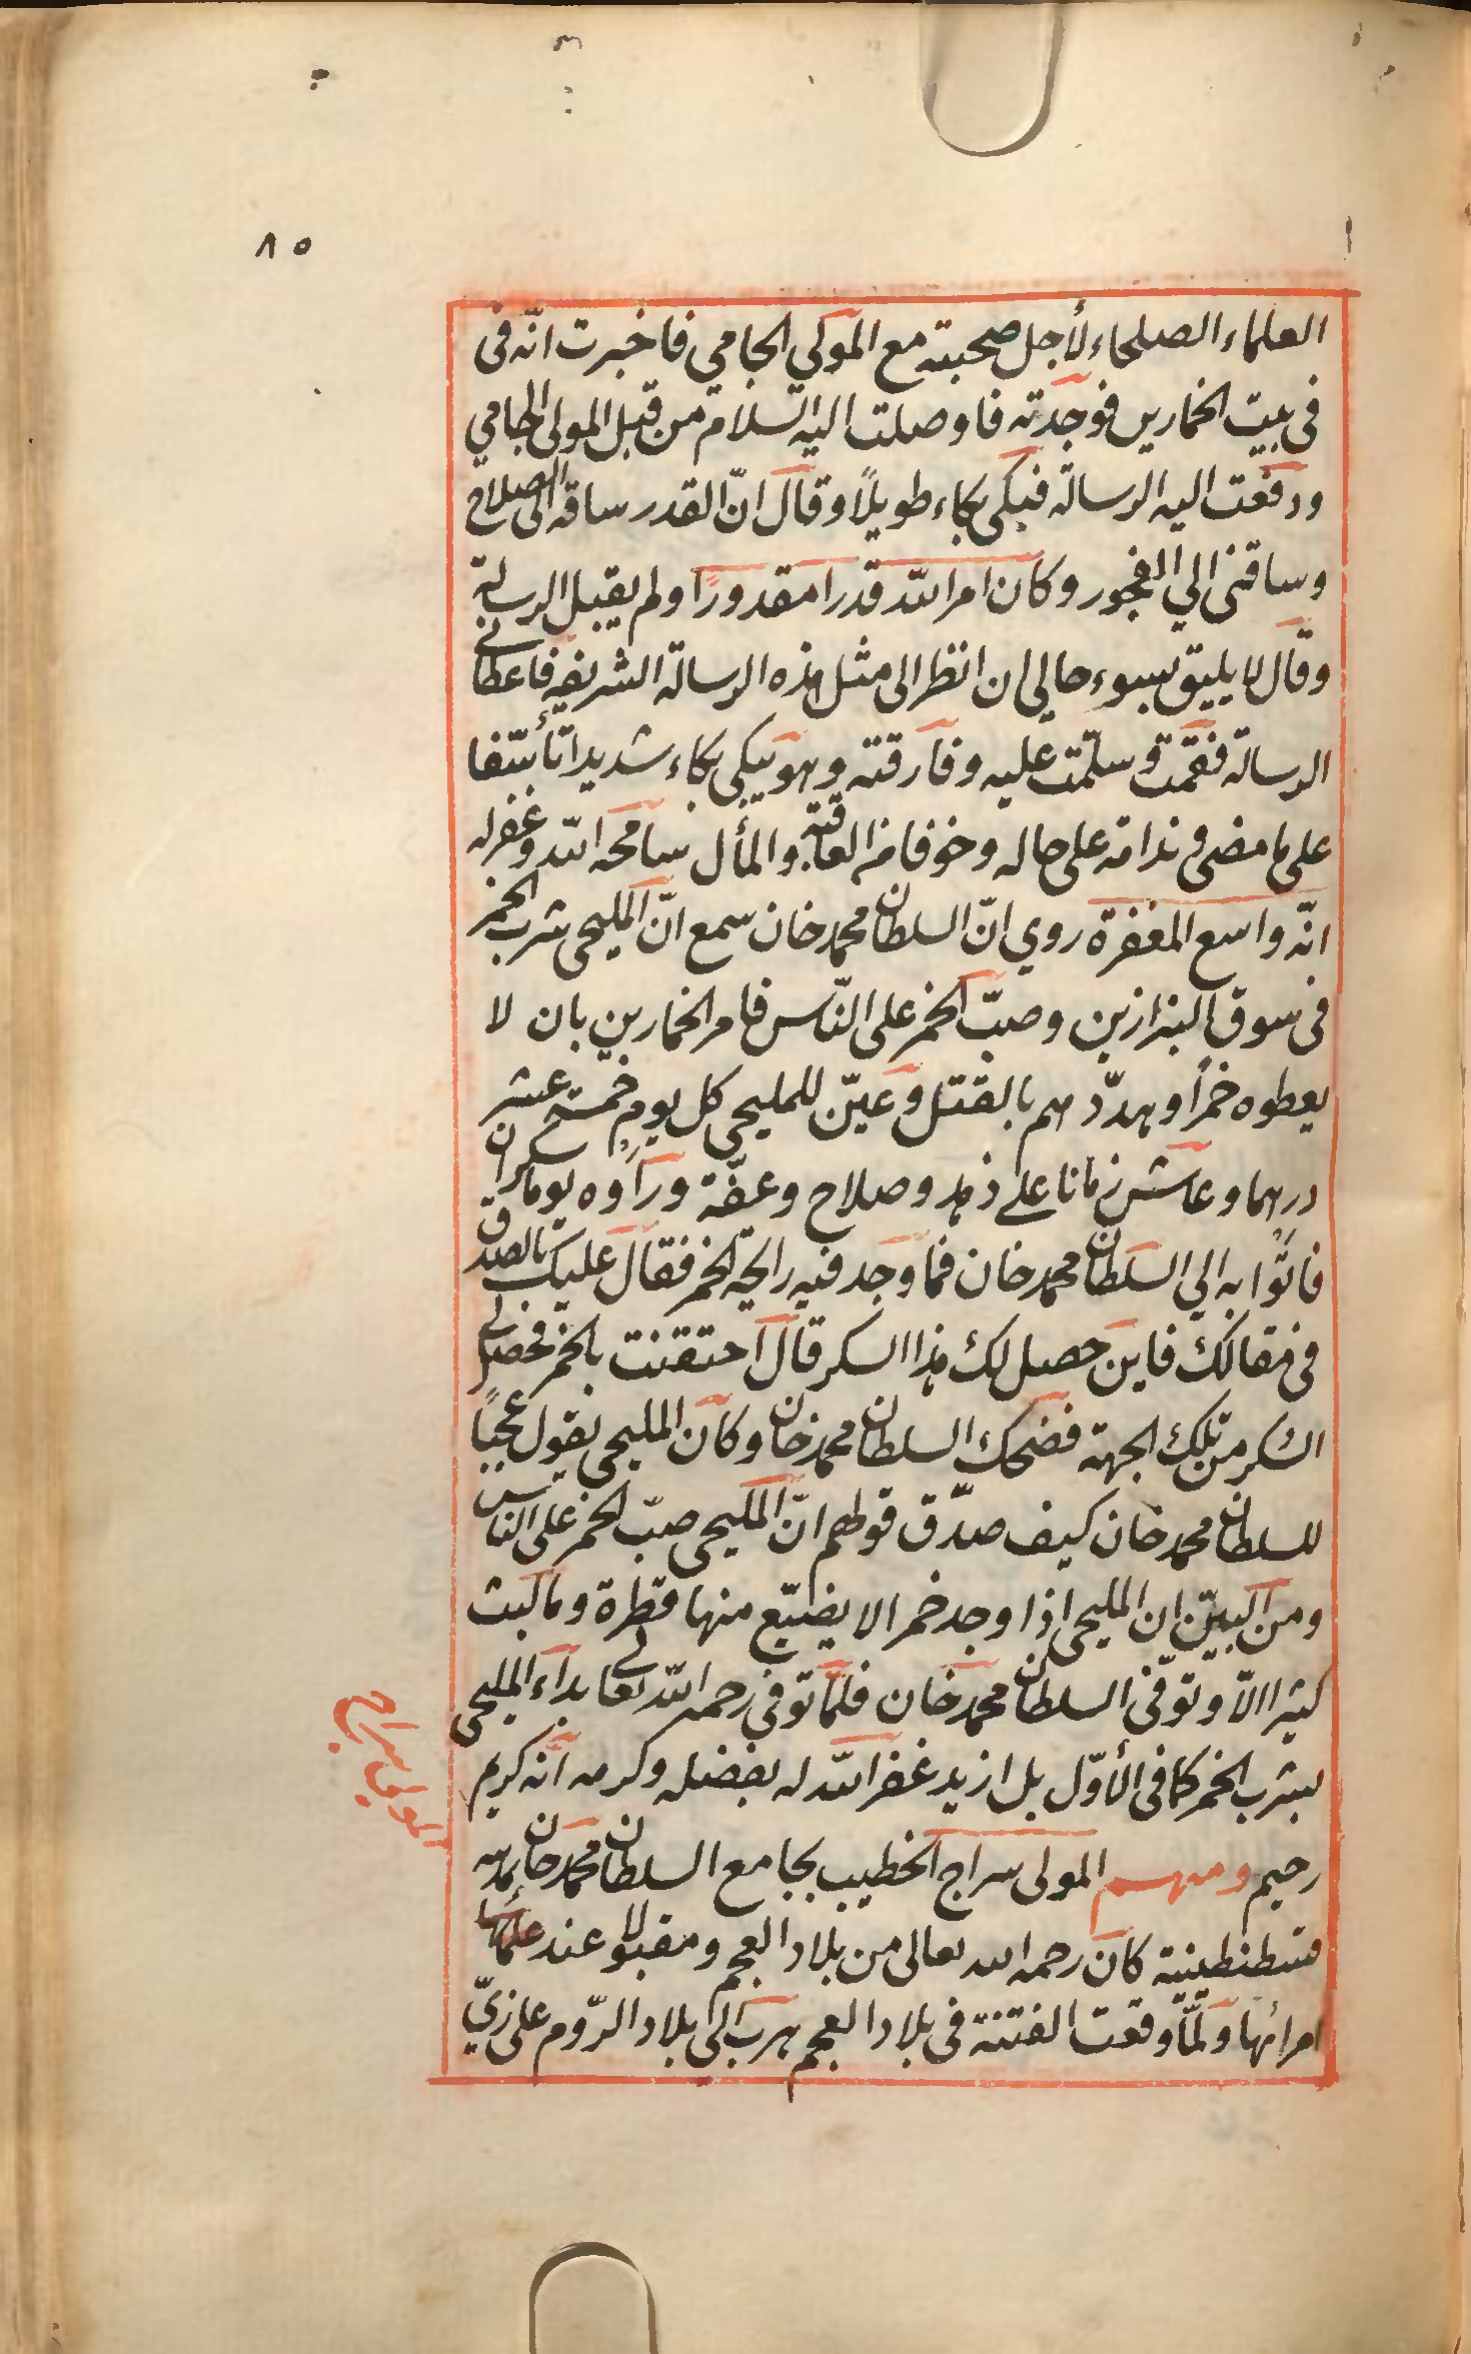 ٨٥
العلماء الصلحاء لأجل صحبته مع المولى الجامي فاخبرت انّه فى
فى بيت الخمارين فوجدته فاوصلت اليه السّلام من قبل المولى الجامي
ودفعت اليه الرسالة فبكى بكاء طويلًا وقال انّ القدر ساقه الى الصلاح
وساقنى الي الفجور وكان امر اللّه قدرا مقدورًا ولم يقبل الرسالة
وقال لا يليق بسوء حالي ان انظر الى مثل هذه الرسالة الشريفة فاعطانى
الرسالة فقمت و سلّمت عليه وفارقته وهو يبكى بكاء شديدا تأسّفا
على ما مضى و ندامة على حاله وخوفا من العاقبة والمأل سامحه اللّه وغفر له
انّه واسع المغفرة روي انّ السلطان محمد خان سمع انّ المليحى شرب الخمر
فى سوق البزازين وصبّ الخمر على النّاس فامر الخمارين بان لا
يعطوه خمرًا وهدّدهم بالقتل وعيّن للمليحى كل يوم خمسة عشر
درهما وعاش زمانا على زهد وصلاح وعفّة ورأوه يوما سكران
فاتوا به الي السلطان محمد خان فما وجد فيه رايحة الخمر فقال عليك بالصدق
فى مقالك فاين حصل لك هذا السكر قال احتقنت بالخمر فحصل لى
السّكر من تلك الجهة فضحك السلطان محمد خان وكان المليحى يقول عجبًا
للسلطان محمد خان كيف صدّق قولهم انّ المليحى صبّ الخمر على الناس
ومن البيّن ان المليحى اذا وجد خمرا لا يضيّع منها قطرة وما لبث
كثيرا الّا وتوفّى السلطان محمد خان فلمّا توفى رحمه اللّه تعالى بداء المليحى
بشرب الخمر كما فى الأوّل بل ازيد غفر اللّه له بفضله وكرمه انّه كريم
رحيم ومنهم المولى سراج الخطيب بجامع السلطان محمد خان بمدينة
قسطنطينية كان رحمه الله تعالى من بلاد العجم ومقبولا عند علمائها
امرائها ولمّا وقعت الفتنة فى بلاد العجم هرب الى بلاد الرّوم على زيّ
المولى سراج